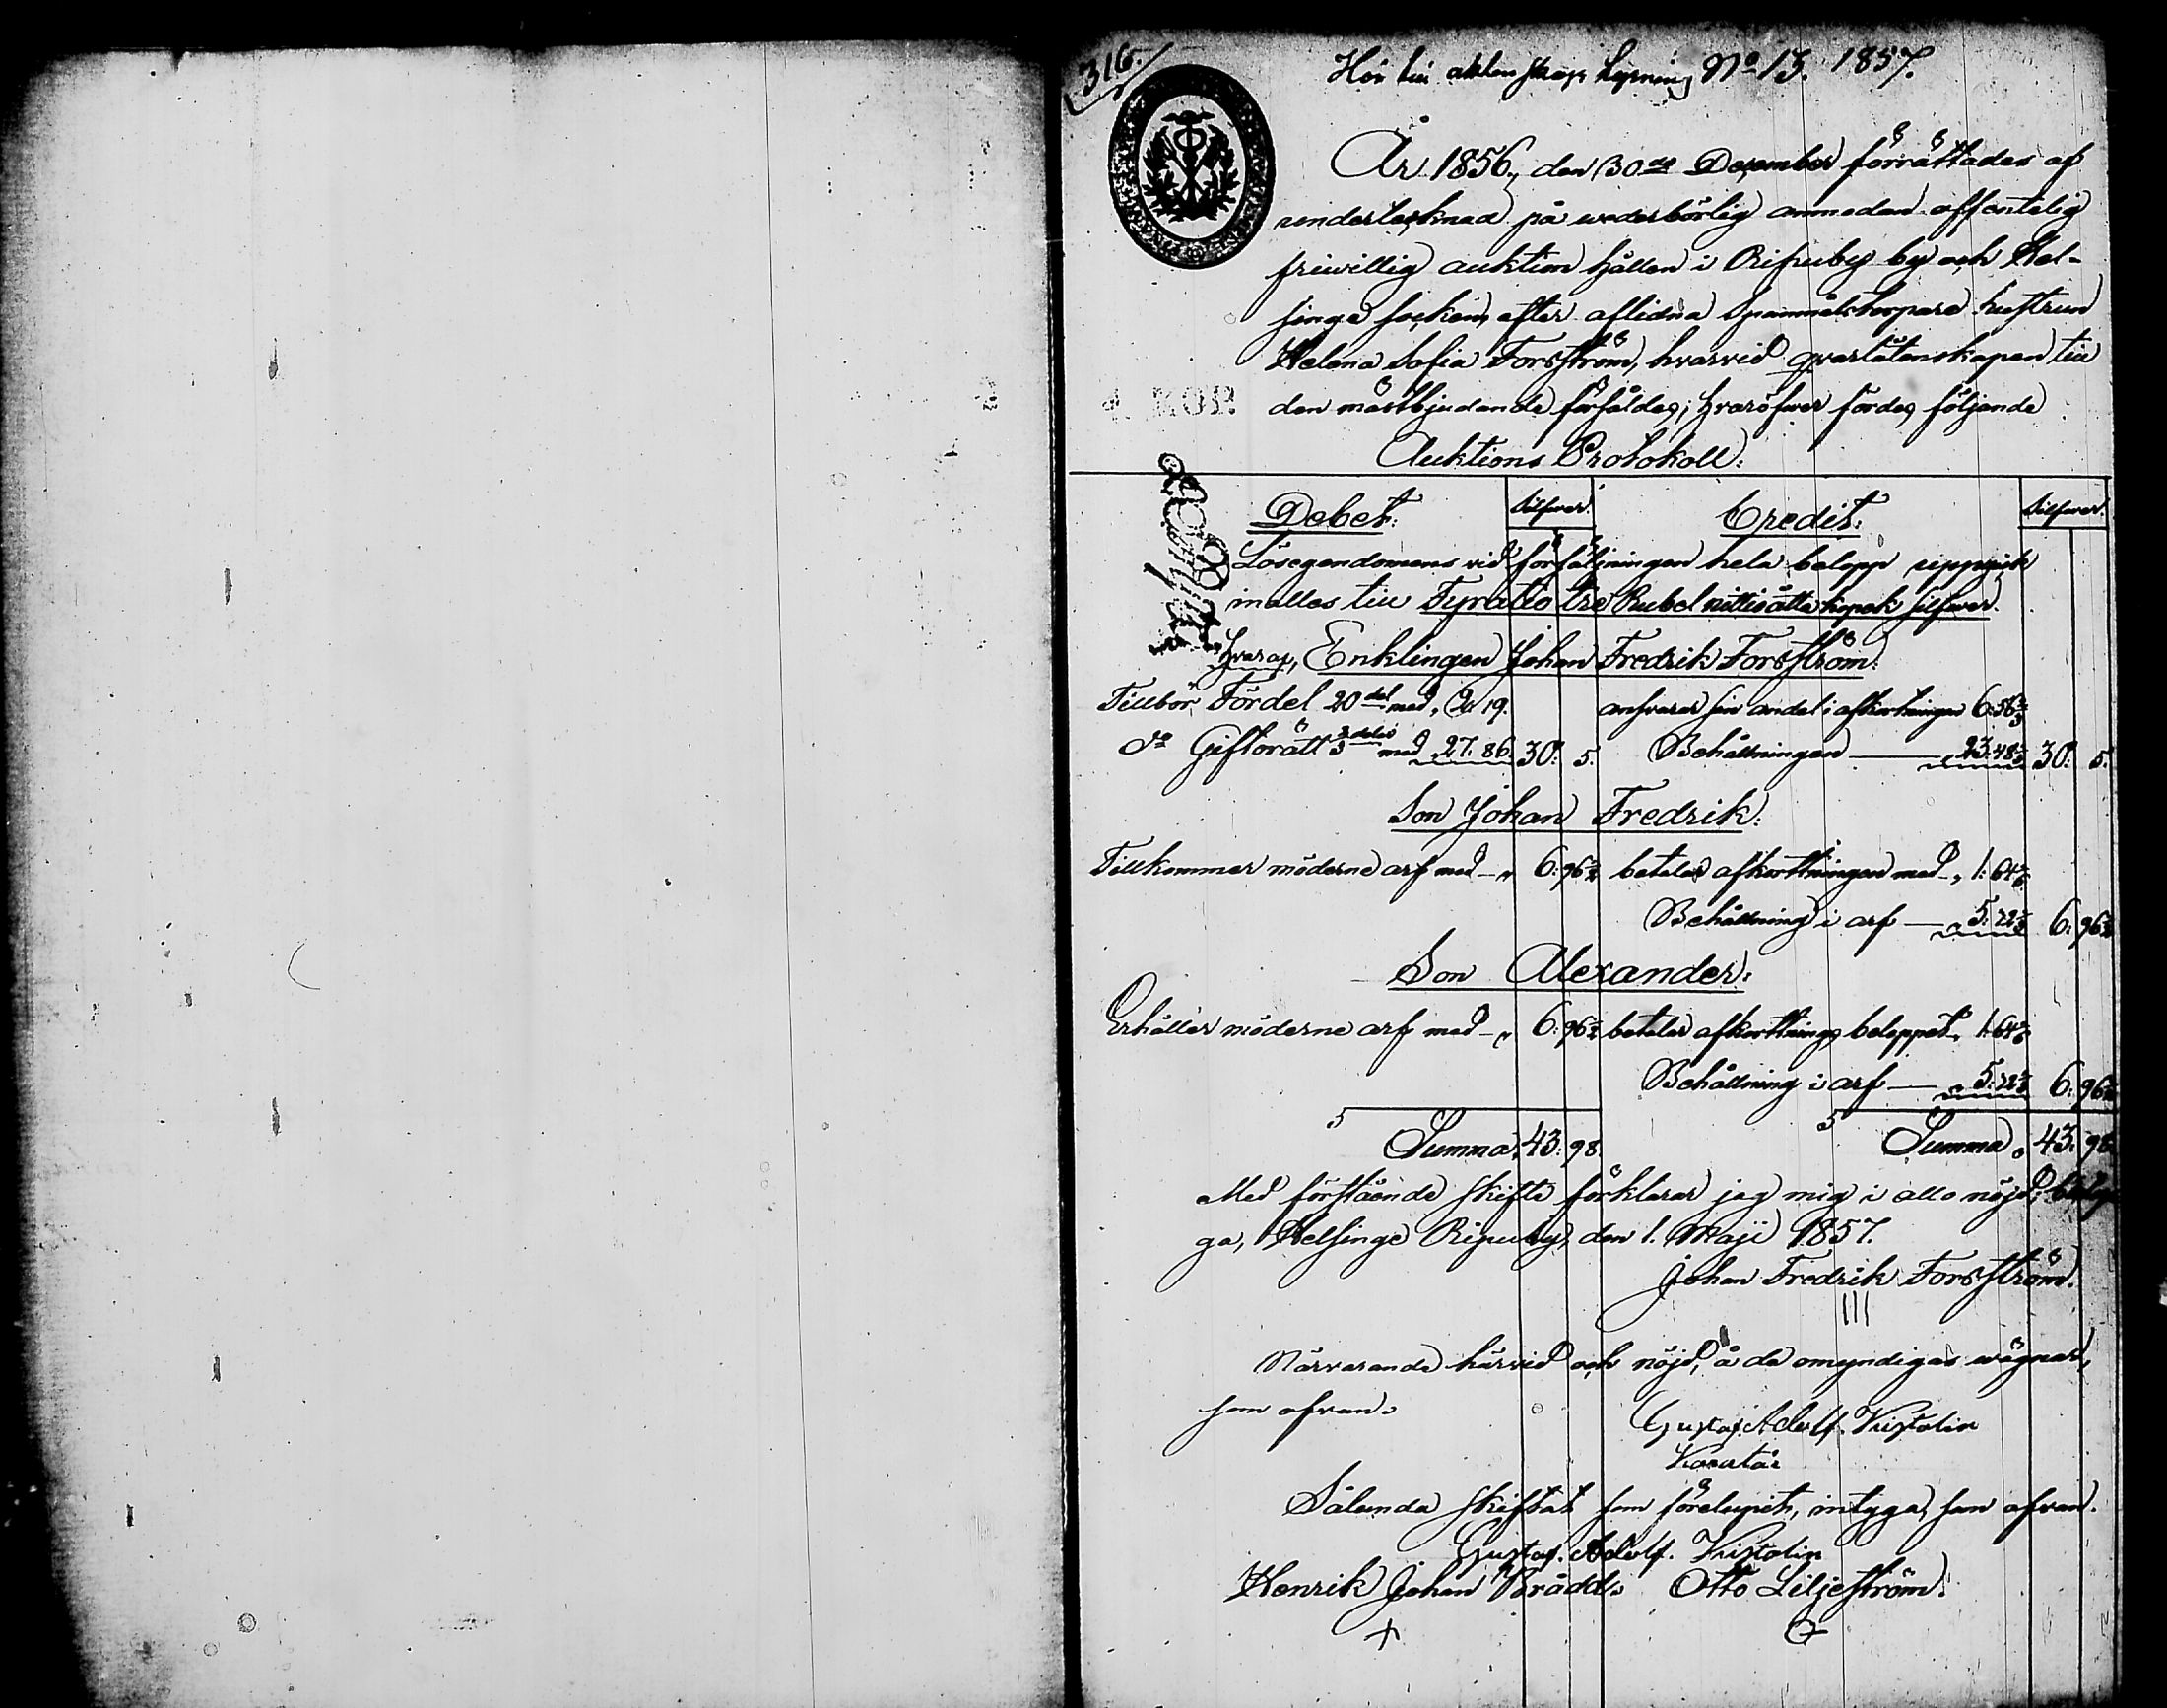 316.
Hör till aktenskaps lysning No 13. 1857.
År 1856, den 30de December förrättades af
undertecknad på wederbörlig anmodan offentelig
friwillig auktion hållen i Ripuby by och Hel-
singe socken, efter aflidna Spannmålstorpare hustrun
Helena Sofia Forsström, hvarvid qvarlåtenskapen till
4 KOP. den mästbjudande försåldes; hvaröfver fördes följande
Auktions Protokoll:
Debet: Silfwer. Credit: Silfwer.
Lösegendomens vid försäljningen hela belopp uppgick
inalles till Fyratio tre Rubel nittioåtta kopek silfwer.
hvaraf, Enklingen Johan Fredrik Forsström:
Tillbör Fördel 20del med, 2. 19. ansvarar sin andel i afkortningen 6:56 2/3
do Giftorätt 3 delis med 27. 86. 30: 5. Behållningen 23:48 1/3 30: 5.
Son Johan Fredrik:
Tillkommer möderne arf med " 6: 96 1/2 betalar afkortningen med " 1: 64
Behållning i arf 5: 32 6: 96 1/2
Son Alexander:
Erhåller möderne arf med " 6: 96 1/2 betalar afkortnings beloppet " 1: 64
Behållning i arf 5: 32 6: 96 1/2
Summa 43: 98. Summa 43: 98
Med förstående skifte förklarar jag mig i allo nöjd,
ga, Helsinge Ripuby, den 1. Maji 1857.
Johan Fredrik Forsström.
Närvarande härvid och nöjd, å de omyndigas wägnar,
som ofvan.
Gustaf Adolf.
Sålunda skiftat som förelupit, intyga, som ofvan.
Gustaf. Adolf.
Henrik Johan Brådd. Otto Liljeström.